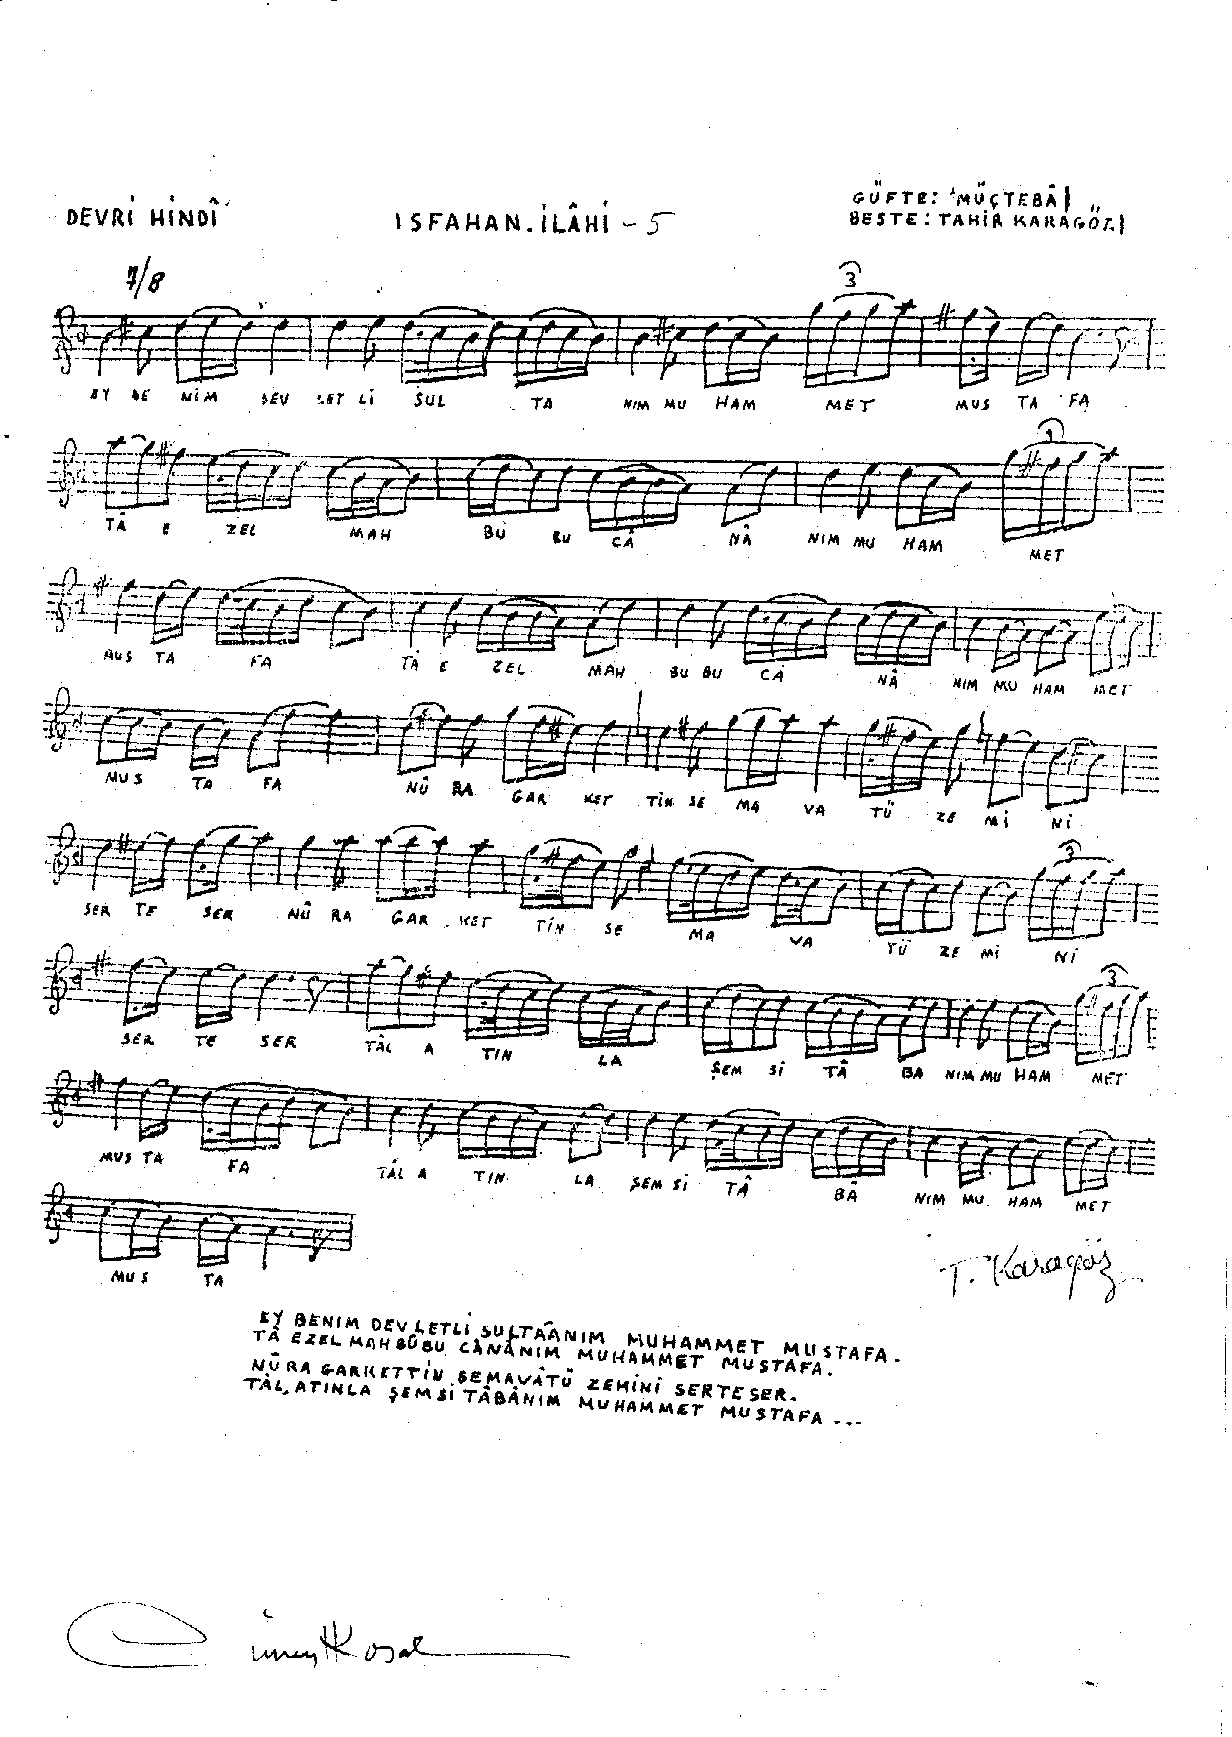 DEVRİ HİNDÎ
ISFAHAN. İLÂHİ - 5
GÜFTE: MÜÇTEBÂ
BESTE: TAHİR KARAGÖZ
7/8
3
EY BE NİM DEV LET Lİ SUL TA NIM MU HAM MET MUS TA FA
TÂ E ZEL MAH BÛ BU CÂ NÂ NIM MU HAM MET
MUS TA FA TÂ E ZEL MAH BU BU CÂ NÂ NIM MU HAM MET
MUS TA FA NÛ RA GAR KET TİN SE MA VA TÜ ZE Mİ Nİ
3
SER TE SER NÛ RA GAR KET TİN SE MA VA TÜ ZE Mİ Nİ
3
SER TE SER TÂL A TIN LA ŞEM Sİ TÂ BA NIM MU HAM MET
MUS TA FA TÂL A TIN LA ŞEM Sİ TÂ BÂ NIM MU HAM MET
MUS TA
T. Karagöz
EY BENIM DEVLETLİ SULTÂANIM MUHAMMET MUSTAFA.
TÂ EZEL MAHBÛBU CÂNÂNIM MUHAMMET MUSTAFA.
NÛRA GARKETTİN SEMAVÂTÜ ZEMİNİ SERTESER.
TÂL, ATINLA ŞEMSİ TÂBÂNIM MUHAMMET MUSTAFA ...